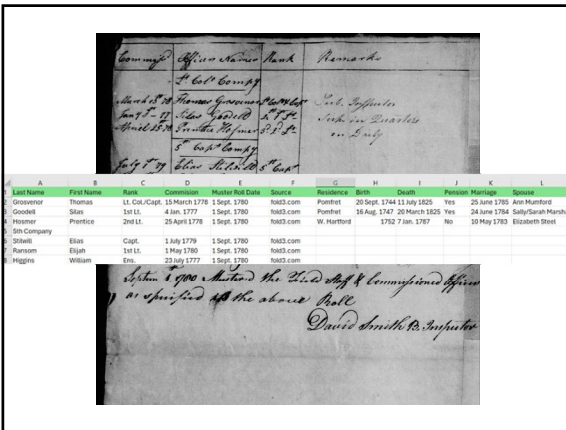 Commiss'd Officers Names Rank Remarks
Lt Colo Compy
March 15 78 Thomas Grosvenor Lt Colo & Capt Sub. Inspector
Jany 1st - 77 Silas Goodell 1st Lt Sick in Quarters
April 25 78 Prentice Hosmer 2d Lt on Duty
5th Capt Compy
July 1st 79 Elias Stilwill 5th Capt
A B C D E F G H I J K L
1 Last Name First Name Rank Commision Muster Roll Date Source Residence Birth Death Pension Marriage Spouse
2 Grosvenor Thomas Lt. Col./Capt. 15 March 1778 1 Sept. 1780 fold3.com Pomfret 20 Sept. 1744 11 July 1825 Yes 25 June 1785 Ann Mumford
3 Goodell Silas 1st Lt. 4 Jan. 1777 1 Sept. 1780 fold3.com Pomfret 16 Aug. 1747 20 March 1825 Yes 24 June 1784 Sally/Sarah Marsh
4 Hosmer Prentice 2nd Lt. 25 April 1778 1 Sept. 1780 fold3.com W. Hartford 1752 7 Jan. 1787 No 10 May 1783 Elizabeth Steel
5 5th Company
6 Stitwill Elias Capt. 1 July 1779 1 Sept. 1780 fold3.com
7 Ransom Elijah 1st Lt. 1 May 1780 1 Sept. 1780 fold3.com
8 Higgins William Ens. 23 July 1777 1 Sept. 1780 fold3.com
Septem 1st 1780 Mustered the Field Staff & Commissioned Officers
as specified in the above Roll
David Smith B. Inspector